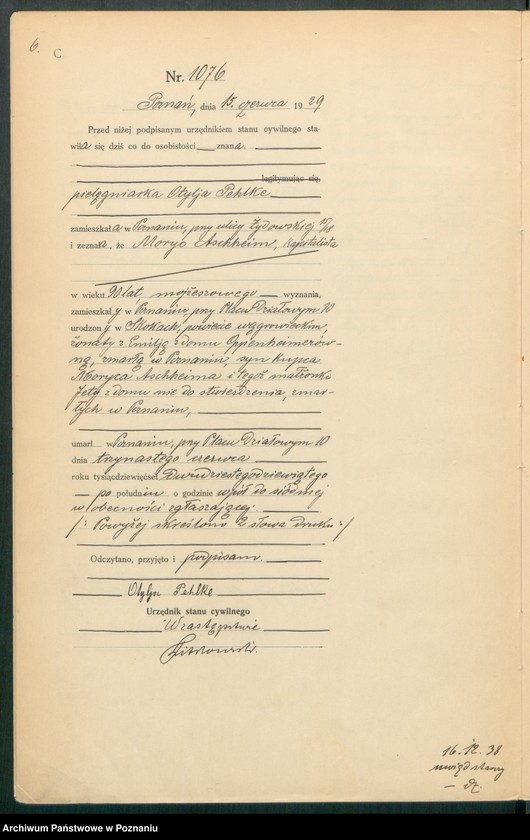 6. C
Nr. 1076
Poznań, dnia 15. czerwca 1929
Przed niżej podpisanym urzędnikiem stanu cywilnego sta-
wiła się dziś co do osobistości znana.
legitymując się,
pielęgniarka Otylja Pehlke
zamieszkała w Poznaniu, przy ulicy Żydowskiej 15/18
i zeznała, że Moryc Aschheim, kapitalista
w wieku 90 lat mojżeszowego wyznania,
zamieszkały w Poznaniu przy Placu Działowym 10
urodzony w Mokach, powiecie wągrowieckim,
żonaty z Emilją z domu Oppenheimerów-
ną, zmarłą w Poznaniu, syn kupca
Moryca Aschheima i tegoż małżonki
Jety z domu nie do stwierdzenia, zmar-
łych w Poznaniu,
umarł w Poznaniu, przy Placu Działowym 10
dnia trzynastego czerwca
roku tysiącdziewięćset dwudziestegodziewiątego
po południu o godzinie wpół do siódmej
w obecności zgłaszającej.
/: Powyżej skreślono 2 słowa druku :/
Odczytano, przyjęto i podpisano.
Otylja Pehlke
Urzędnik stanu cywilnego
W zastępstwie
16. 12. 38